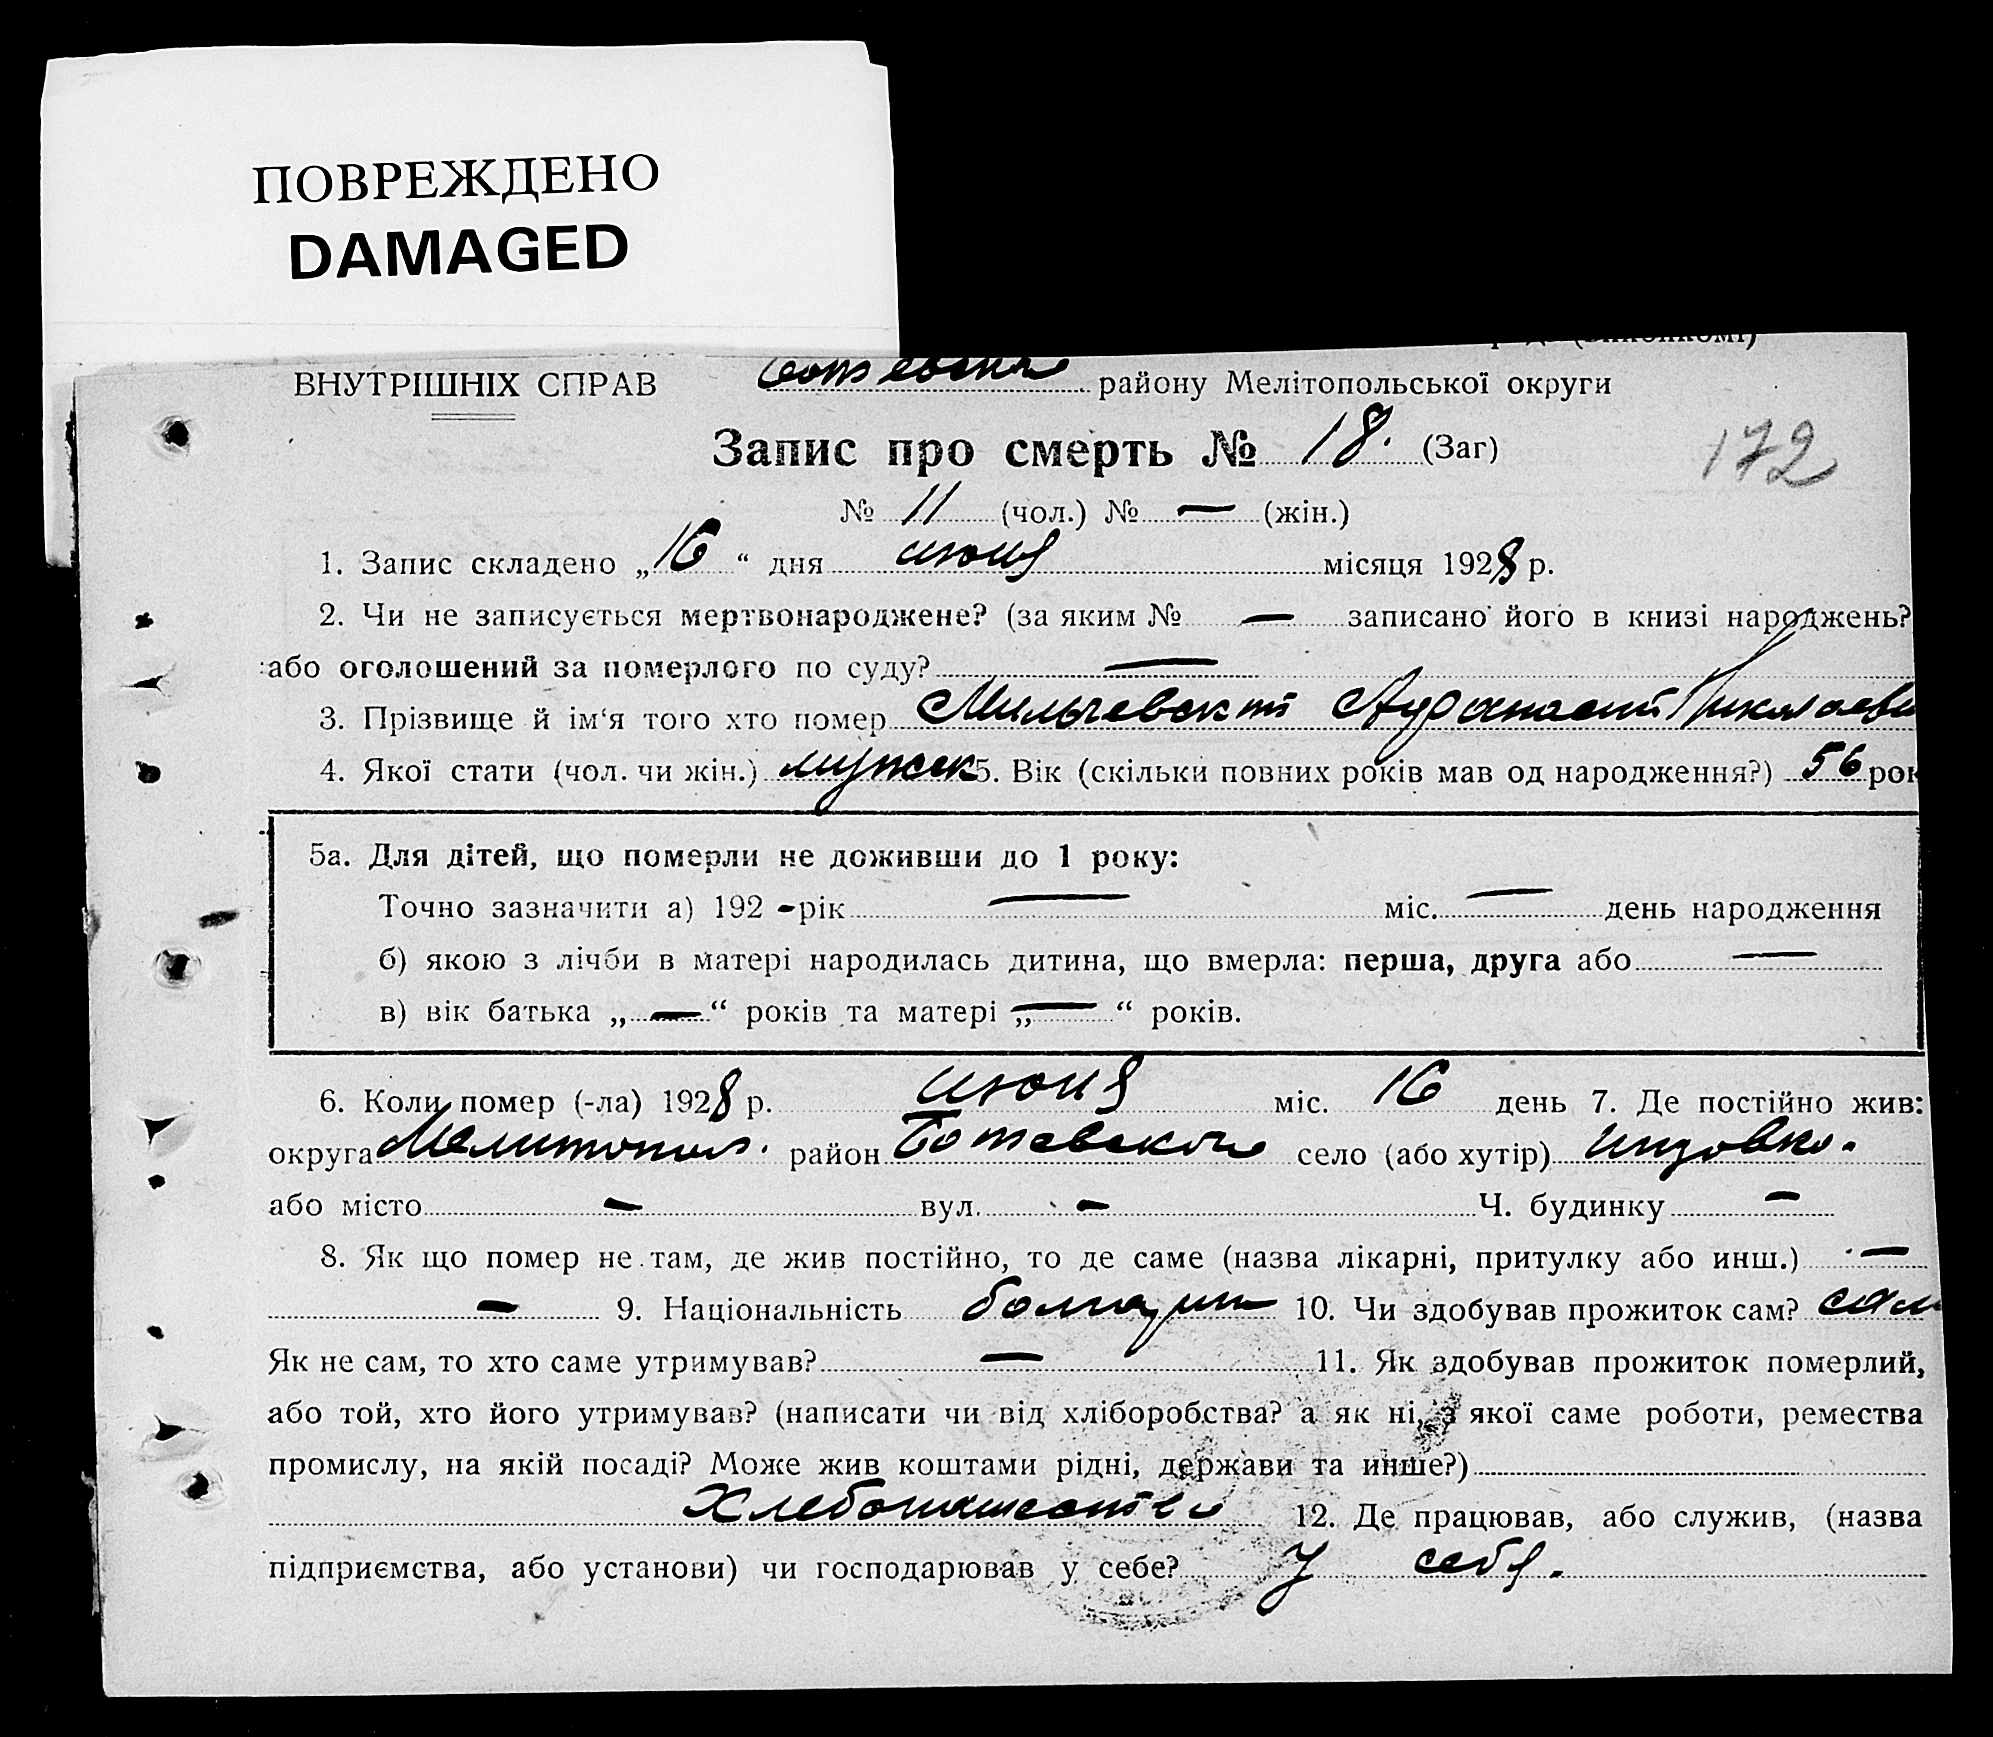 ПОВРЕЖДЕНО
DAMAGED
ВНУТРІШНІХ СПРАВ району Мелітопольської округи
Запис про смерть № 18. (Заг)
172
№ 11 (чол.) № — (жін.)
1. Запис складено „16“ дня июня місяця 1928 р.
2. Чи не записується мертвонароджене? (за яким № — записано його в книзі народжень?
або оголошений за померлого по суду? —
3. Прізвище й ім‘я того хто помер Мильчевский Афанасий Николаеви
4. Якої стати (чол. чи жін.) мужск 5. Вік (скільки повних років мав од народження?) 56 рок
5а. Для дітей, що померли не доживши до 1 року:
Точно зазначити а) 192 - рік — міс. — день народження
б) якою з лічби в матері народилась дитина, що вмерла: перша, друга або —
в) вік батька „—“ років та матері „—“ років.
6. Коли помер (-ла) 1928 р. июня міс. 16 день 7. Де постійно жив:
округа Мелитопол. район Ботевского село (або хутір)
або місто — вул. — Ч. будинку —
8. Як що помер не там, де жив постійно, то де саме (назва лікарні, притулку або инш.) —
— 9. Національність болгарин 10. Чи здобував прожиток сам? сам
Як не сам, то хто саме утримував? — 11. Як здобував прожиток померлий,
або той, хто його утримував? (написати чи від хліборобства? а як ні, з якої саме роботи, ремества
промислу, на якій посаді? Може жив коштами рідні, держави та инше?)
Хлебопашество 12. Де працював, або служив, (назва
підприємства, або установи) чи господарював у себе? У себя.